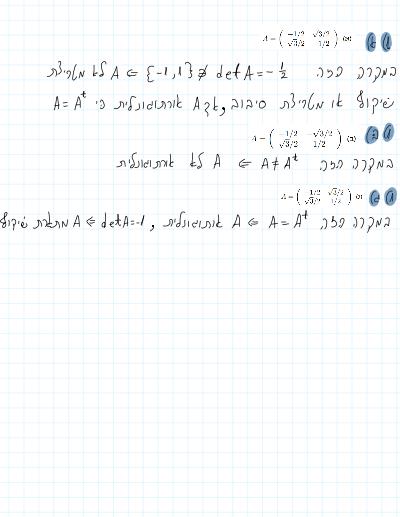 A = ( -1/2 √3/2 √3/2 1/2 ) (א) א 1
במקרה הזה {-1,1} ∌ detA = -1/2 ⇐ A לא מטריצת
שיקוף או מטריצת סיבוב, אך A אורתוגונלית כי A = Aᵗ
A = ( -1/2 -√3/2 √3/2 1/2 ) (ב) ב 1
במקרה הזה A ≠ Aᵗ ⇐ A לא אורתוגונלית
במקרה הזה A = Aᵗ ⇐ A אורתוגונלית, detA=-1 ⇐ A מתארת שיקוף